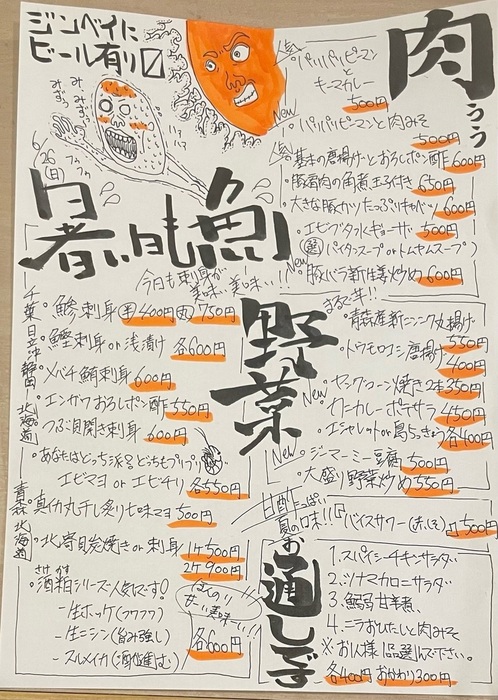 ジンベイに
ビール有り〼
みずっ
みずっ
6/26(日)
暑い日も魚
今日も刺身が
美味い美味い!!
千葉
・鯵刺身(半)400円(丸)750円
日立沖
・鰹刺身or浅漬け 各600円
静岡
・メバチ鮪刺身 600円
北海道
・エンガワおろしポン酢 550円
・つぶ貝開き刺身 600円
・あなたはどっち派? どっちもプリプリ
エビマヨ or エビチリ 各550円
青森
・真イカ丸干し炙り七味マヨ 500円
北海道
・北寄貝炭焼き or 刺身 1ケ500円
2ケ900円
さけかす
・酒粕シリーズ人気です!
ー生ホッケ(フワフワ)
ー生ニシン(旨み強し)
ースルメイカ(酒が進む)
ほんのり
甘い美味い!!
各600円
肉
うう
人気
・パリパリピーマン
と
キーマカレー
500円
New
・パリパリピーマンと肉みそ
500円
・基本の唐揚げとおろしポン酢 600円
・豚肩肉の角煮玉子付き 650円
・大きな豚カツたっぷりキャベツ 600円
・エビワンタンギョーザ 500円
(選)(パイタンスープorトムヤムスープ)
New
・豚バラ新生姜炒め 600円
野菜
まるごと!!
・青森産新ニンニク丸揚げ
550円
・トウモロコシ唐揚げ
400円
New
・ヤングコーン焼き2本 350円
・カニカレーポテサラ
450円
・エシャレットor島らっきょう 各400円
New
・ジーマーミー豆腐 500円
・大盛り野菜炒め 550円
甘酢っぱい
夏の味!!
『バイスサワー(赤しそ)』500円
お通しです
1.スパイシーチキンサラダ
2.ツナマカロニサラダ
3.鰯甘辛煮
4.ニラおひたしと肉みそ
※お1人様1品選んで下さい。
各400円 おかわり300円